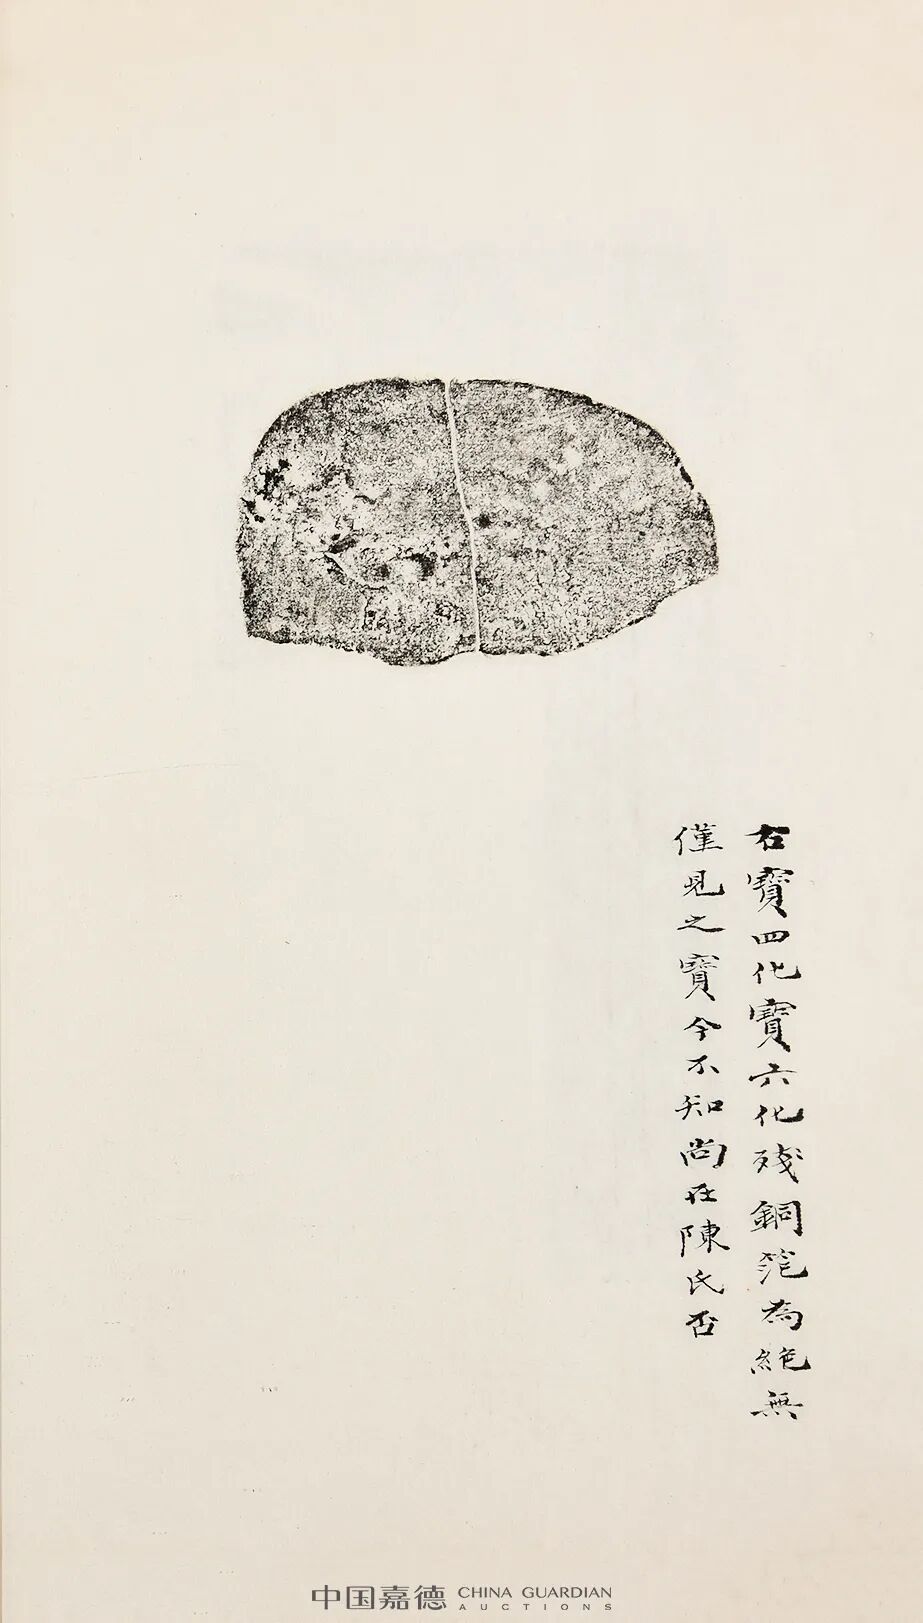 右寶四化寶六化殘銅笵為絕無
僅見之寶今不知尚在陳氏否
中国嘉德 CHINA GUARDIAN
AUCTIONS